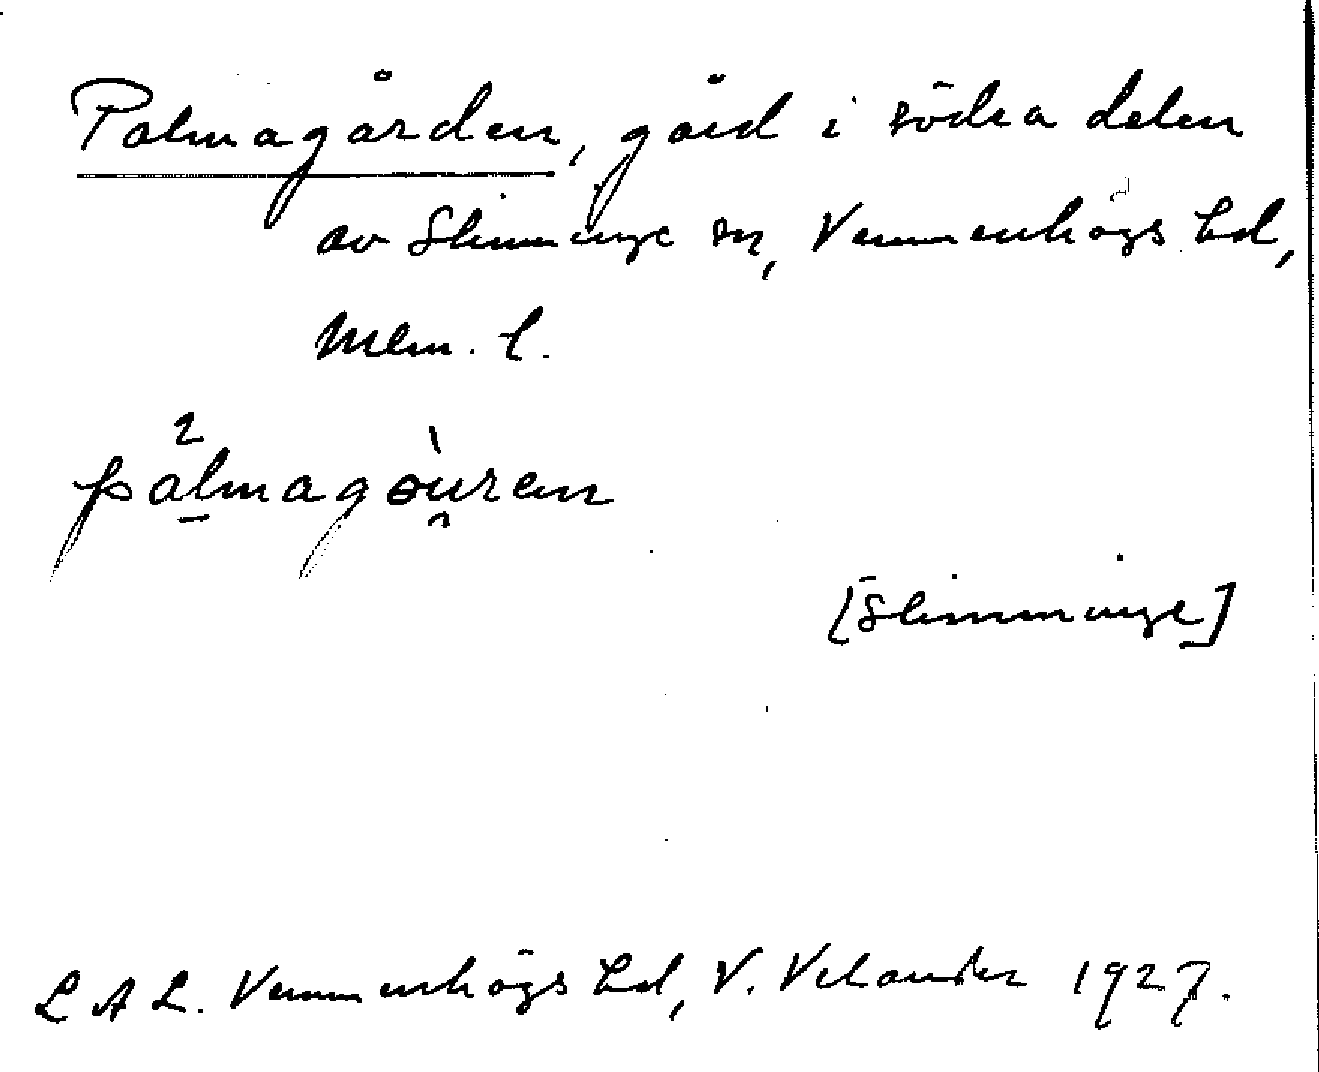 Palmagården, gård i södra delen
av Slimminge sn, Vemmenhögs hd,
Mlm. l.
pa²lmagɵ̀u̯ren
[Slimminge]
L A L. Vemmenhögs hd, V. Velander 1927.